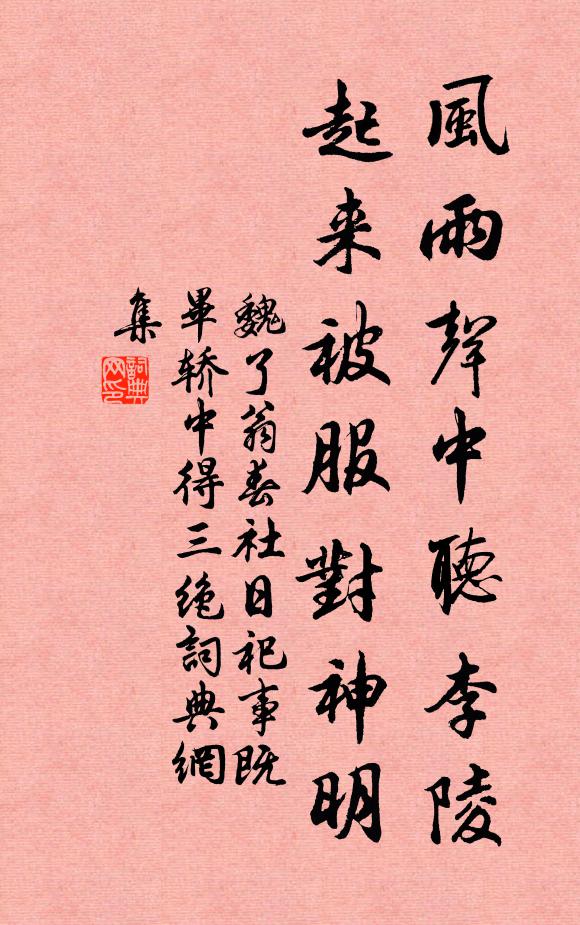 風雨聲中聽李陵
起来被服對神明
魏了翁春社日祀事既
畢轿中得三绝詞典網
集
詞典网印